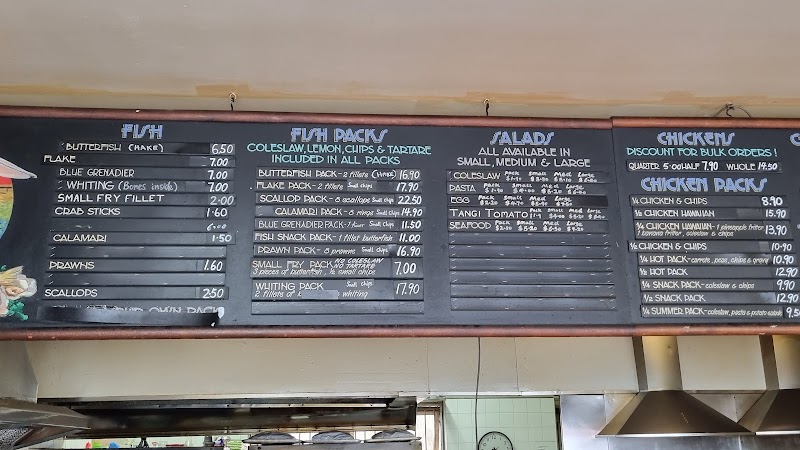 FISH
BUTTERFISH (HAKE) 6.50
FLAKE 7.00
BLUE GRENADIER 7.00
WHITING (Bones inside) 7.00
SMALL FRY FILLET 2.00
CRAB STICKS 1.60
6.00
CALAMARI 1.50
PRAWNS 1.60
SCALLOPS 2.50
OWN PACK
FISH PACKS
COLESLAW, LEMON, CHIPS & TARTARE
INCLUDED IN ALL PACKS
BUTTERFISH PACK- 2 fillets 16.90
FLAKE PACK- 2 fillets Small chips 17.90
SCALLOP PACK- 6 scallops Small chips 22.50
CALAMARI PACK- 5 rings Small chips 14.90
BLUE GRENADIER PACK- Small chips 11.50
FISH SNACK PACK- 1 fillet butterfish 11.00
PRAWN PACK- 5 prawns Small chips 16.90
SMALL FRY PACK NO COLESLAW NO TARTARE 7.00
3 pieces of butterfish, ½ small chips
WHITING PACK Small chips 17.90
2 fillets of whiting
SALADS
ALL AVAILABLE IN
SMALL, MEDIUM & LARGE
COLESLAW Pack Small Med Large
PASTA Pack Small Med Large
EGG Pack Small Med Large
TANGI TOMATO Pack Small Med Large
SEAFOOD Pack Small Med Large
CHICKENS
DISCOUNT FOR BULK ORDERS !
QUARTER 5.00 HALF 7.90 WHOLE 14.50
CHICKEN PACKS
¼ CHICKEN & CHIPS 8.90
½ CHICKEN HAWAIIAN 15.90
¼ CHICKEN HAWAIIAN- 1 pineapple fritter 13.90
1 banana fritter, coleslaw & chips
½ CHICKEN & CHIPS 10.90
¼ HOT PACK- carrots, peas, chips & gravy 10.90
½ HOT PACK 12.90
¼ SNACK PACK- coleslaw & chips 9.90
½ SNACK PACK 12.90
¼ SUMMER PACK- coleslaw, pasta & potato salads 9.50